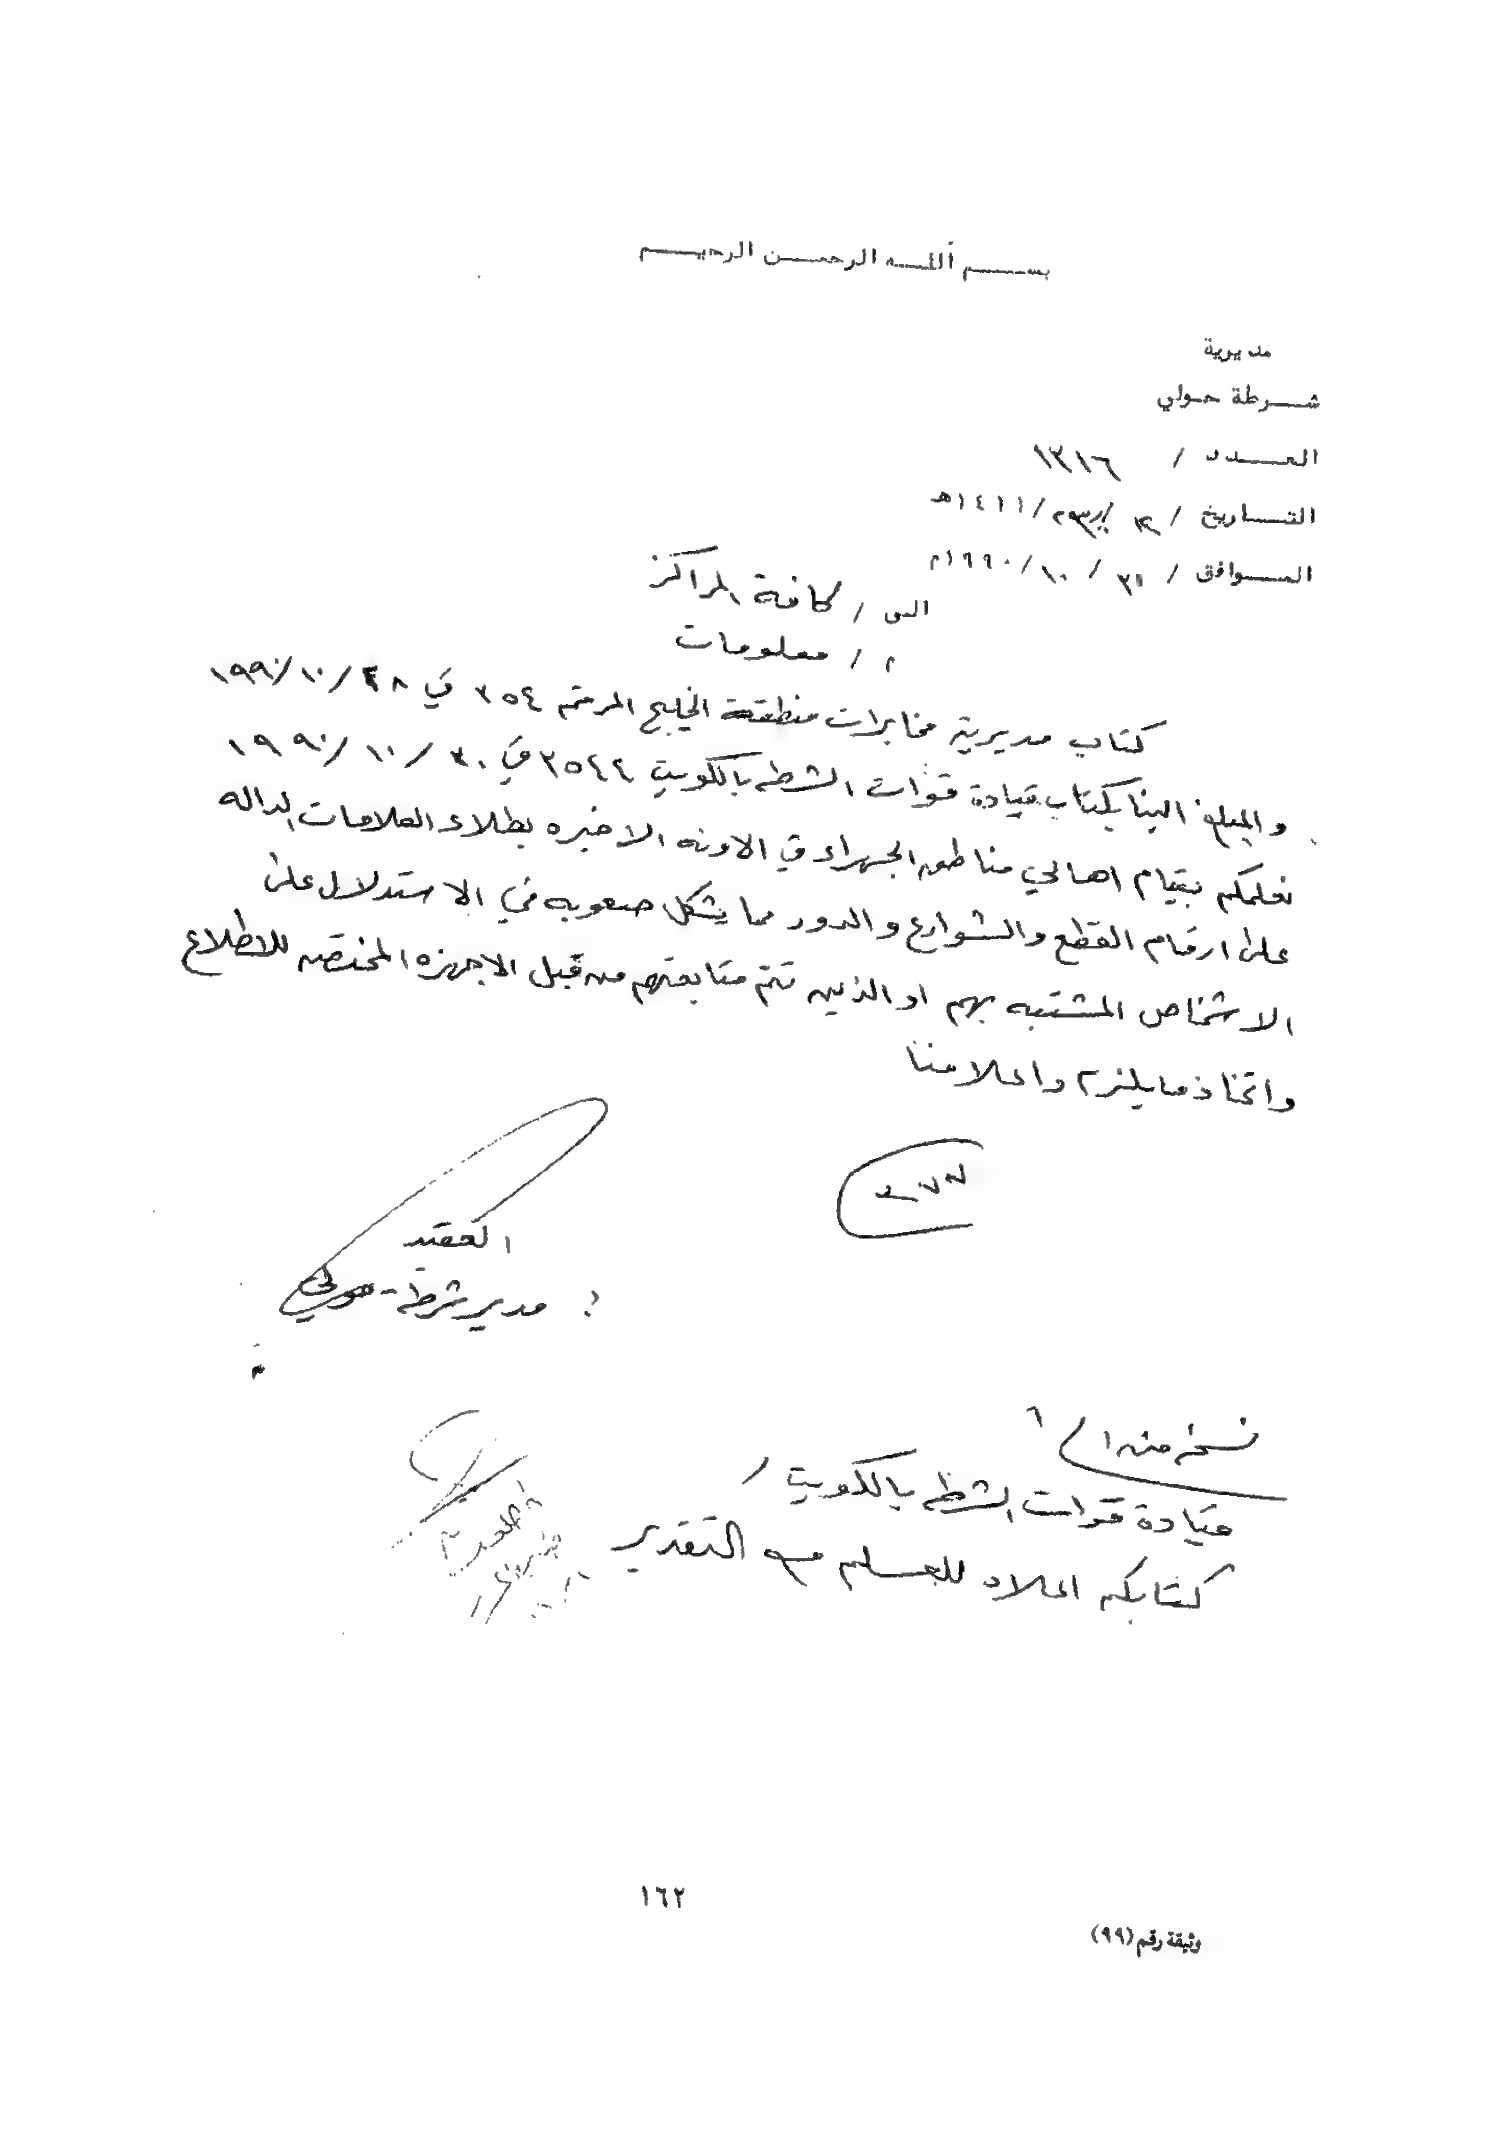 بسم الله الرحمن الرحيم
مديرية
شرطة حولي
العدد / ١٣١٦
التاريخ / ١٢ / / ١٤١١هـ
الموافق / ٣١ / ١٠ / ١٩٩٠م
الى / كافة المراكز
م / معلومات
كتاب مديرية مخابرات منطقة الخليج المرقم ٣٥٤ في ٢٨ / ١٠ / ١٩٩٠
والمبلغ الينا بكتاب قيادة قوات الشرطه بالكويت ٢٥٤٤ في ٣٠ / ١٠ / ١٩٩٠
نعلمكم بقيام اهالي مناطق الجهراء في الاونه الاخيره بطلاء العلامات الداله
على ارقام القطع والشوارع والدور مما يشكل صعوبه في الاستدلال على
الاشخاص المشتبه بهم او الذين تتم متابعتهم من قبل الاجهزه المختصه للاطلاع
واتخاذ مايلزم واعلامنا
العقيد
مدير شرطة حولي
نسخه منه الى /
قيادة قوات الشرطه بالكويت /
كتابكم اعلاه للعلم مع التقدير
١٦٢
وثيقة رقم (٩٩)